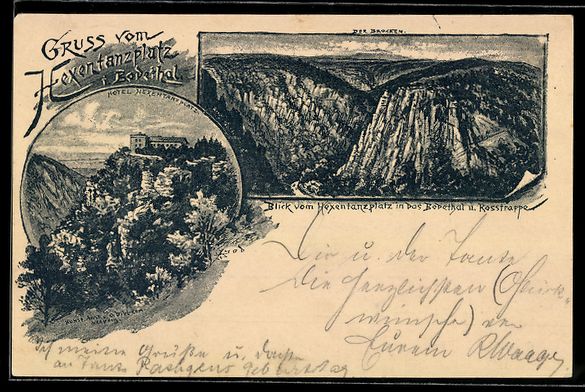 GRUSS vom
Hexentanzplatz
i Bodethal
HOTEL HEXENTANZPLATZ
DER BROCKEN.
Blick vom Hexentanzplatz in das Bodethal u. Rosstrappe
Dir u. der Tante
die herzlichsten (Glück-
wünsche) von
Eurem
meine Grüße u.
an Tante